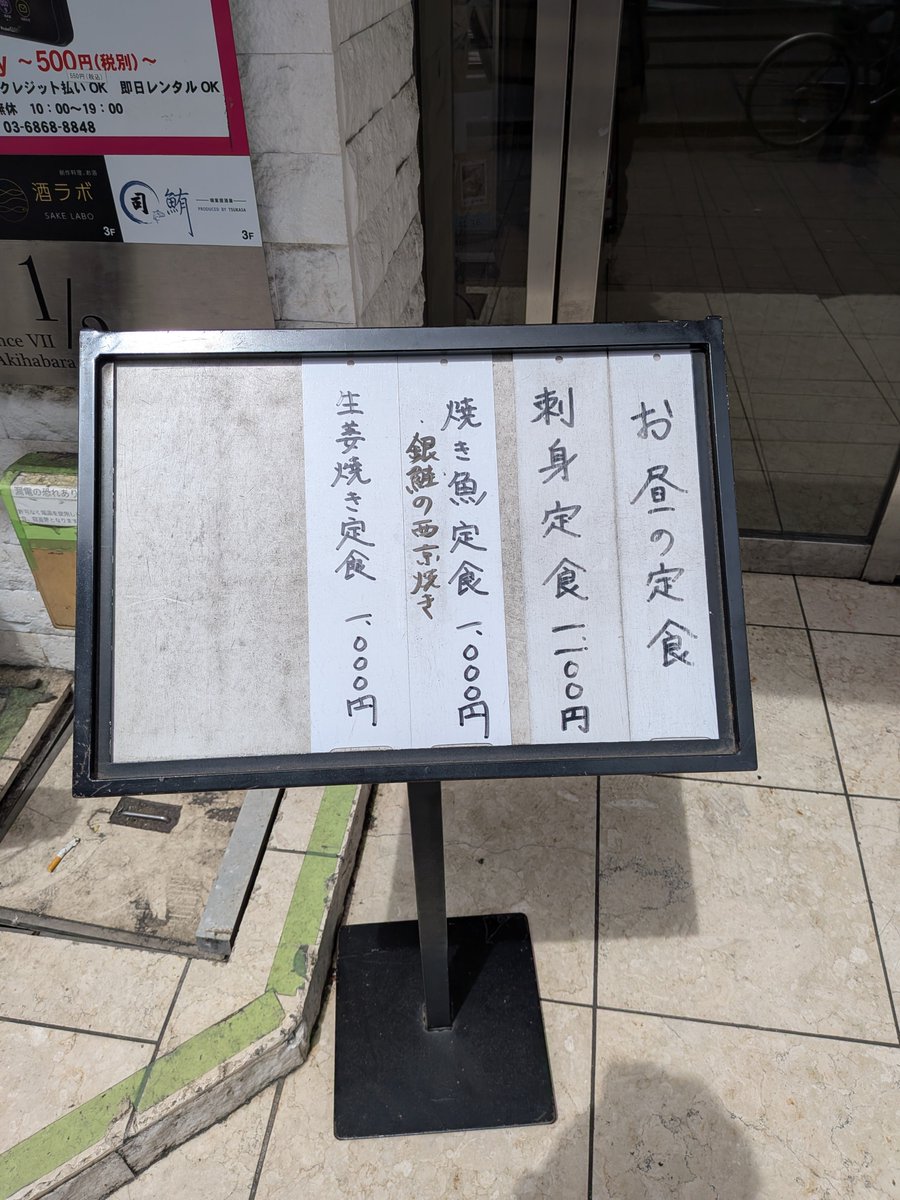 y ～500円(税別)～
550円(税込)
クレジット払いOK 即日レンタルOK
無休 10：00～19：00
03-6868-8848
創作料理、お酒
酒ラボ
SAKE LABO
3F
司
鮪
PRODUCED BY TSUKASA
3F
1
nce VII
Akihabara
漏電の恐れあり
お昼の定食
刺身定食 一、一〇〇円
焼き魚定食 一、〇〇〇円
・銀鮭の西京焼き
生姜焼き定食 一、〇〇〇円